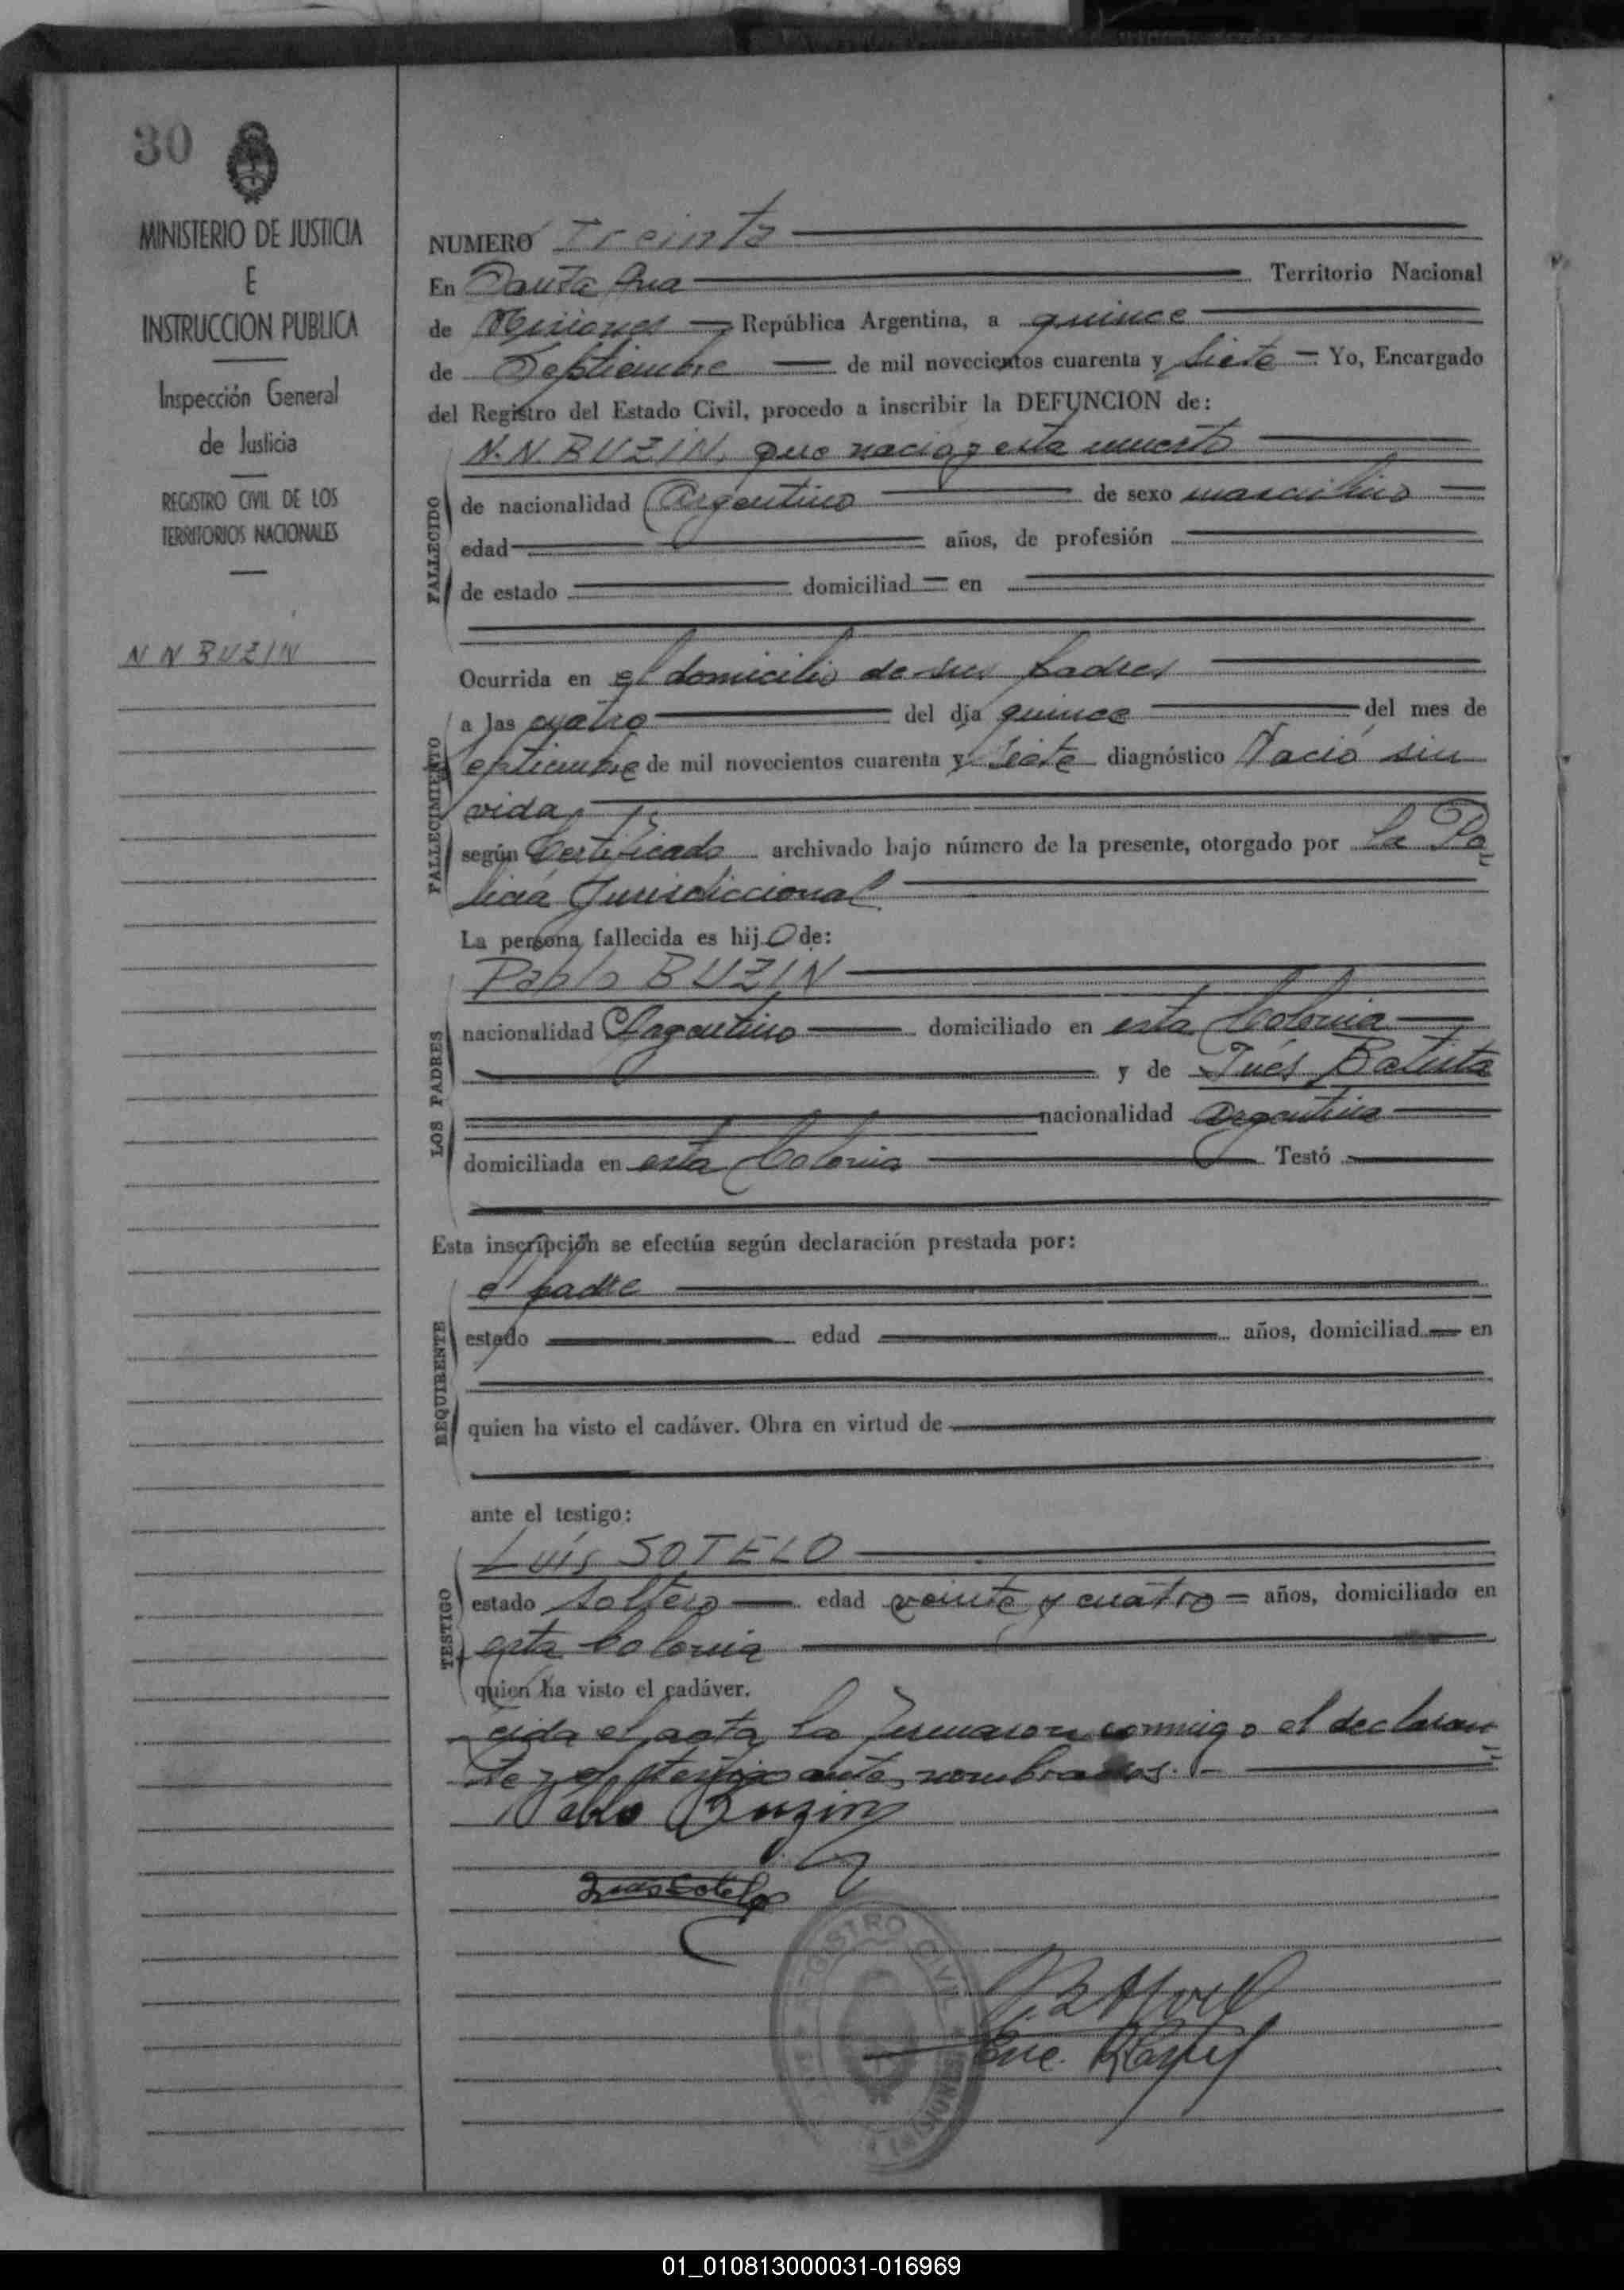 30
MINISTERIO DE JUSTICIA
E
INSTRUCCION PUBLICA
Inspección General
de Justicia
REGISTRO CIVIL DE LOS
TERRITORIOS NACIONALES
N N BUZIN
NUMERO Treinta
En Santa Ana Territorio Nacional
de Misiones República Argentina, a quince
de Septiembre de mil novecientos cuarenta y siete Yo, Encargado
del Registro del Estado Civil, procedo a inscribir la DEFUNCION de:
N.N. BUZIN, que nació y esta muerto
FALLECIDO
de nacionalidad Argentino de sexo masculino
edad años, de profesión
de estado domiciliad en
Ocurrida en el domicilio de sus padres
FALLECIMIENTO
a las cuatro del día quince del mes de
Septiembre de mil novecientos cuarenta y siete diagnóstico Nació sin
vida,
según Certificado archivado bajo número de la presente, otorgado por la Po
licia Jurisdiccional
La persona fallecida es hijo de:
LOS PADRES
Pablo BUZIN
nacionalidad Argentino domiciliado en esta Colonia
y de Inés Batista
nacionalidad argentina
domiciliada en esta Colonia Testó
Esta inscripción se efectúa según declaración prestada por:
REQUIRENTE
el padre
estado edad años, domiciliad en
quien ha visto el cadáver. Obra en virtud de
ante el testigo:
TESTIGO
Luis SOTELO
estado Soltero edad veinte y cuatro años, domiciliado en
esta Colonia
quien ha visto el cadáver.
el acta, la firmaron conmigo el declaran
te y el testigo ante nombrados.
Pablo Buzin
Luis Sotelo
REGISTRO CIVIL
MISIONES
Enc.
01_010813000031-016969